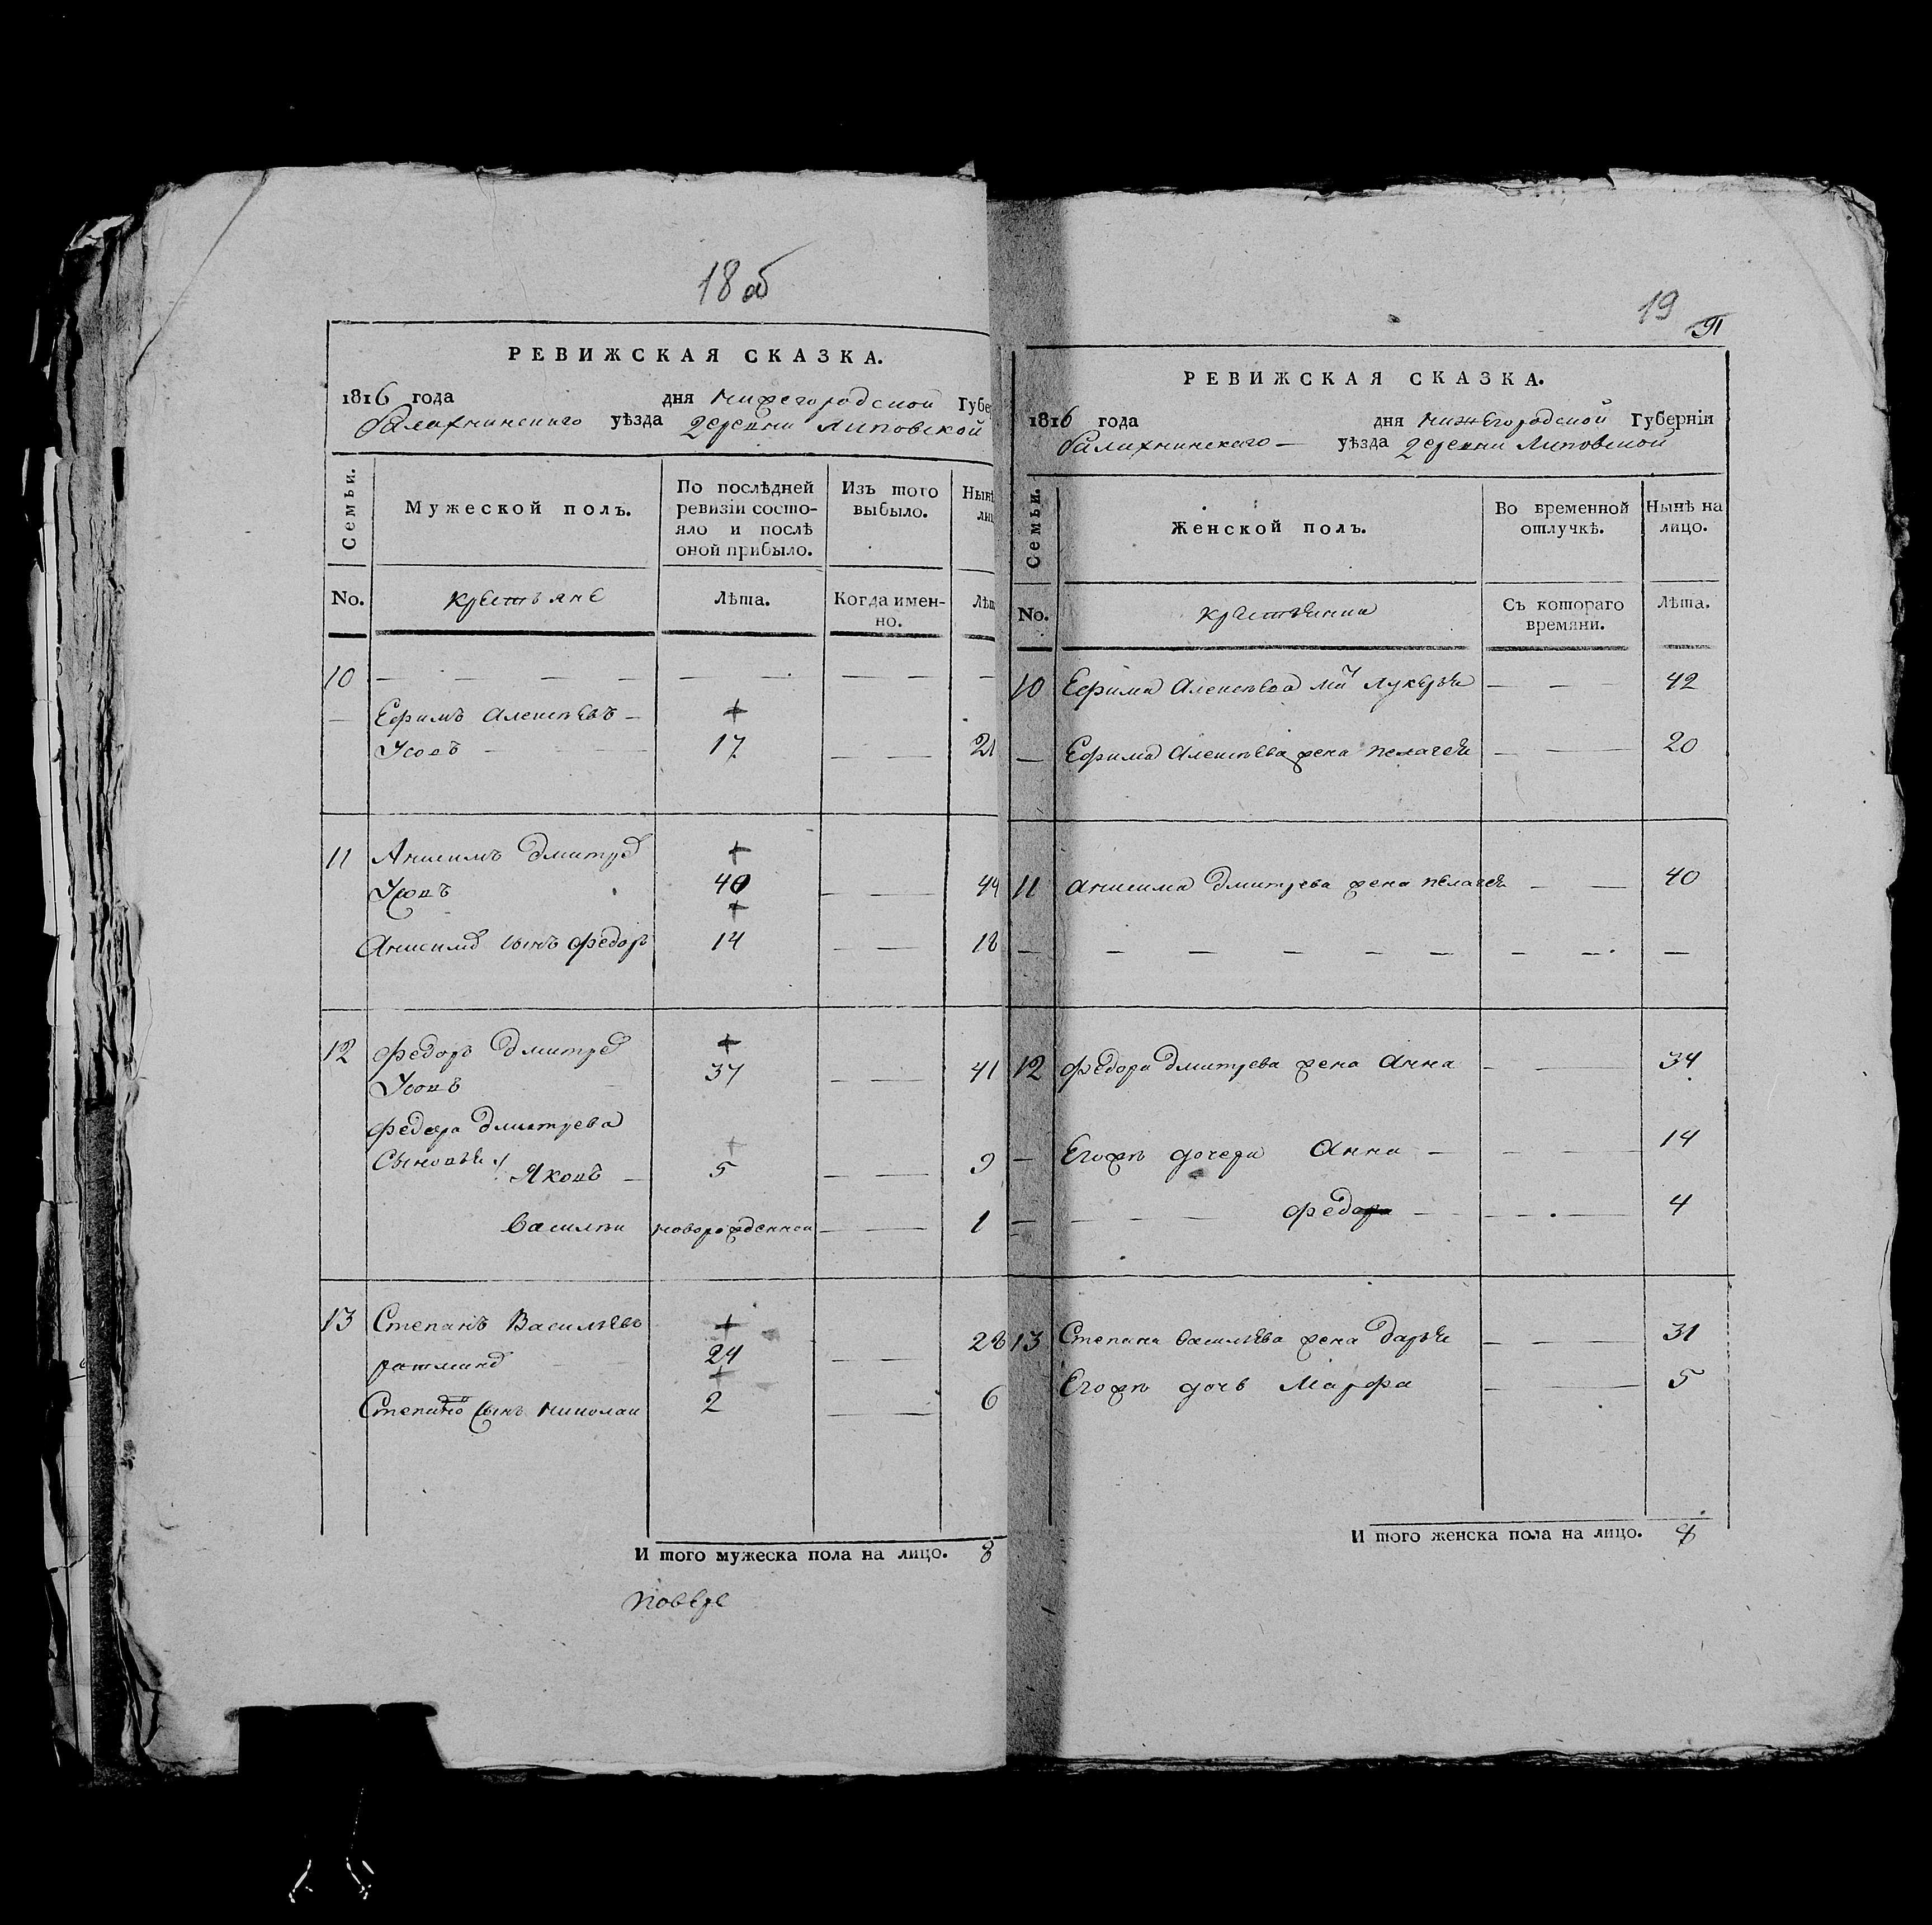 18 об
РЕВИЖСКАЯ СКАЗКА.
1816 года дня Нижегородской Губе
Балахнинскаго уѣзда деревни Липовской
Семьи.
Мужеской полъ.
По послѣдней ревизіи состо-
яло и послѣ
оной прибыло.
Изъ того
выбыло.
Нынѣ
лиц
No.
Крестьяне
Лѣта.
Когда имен-
но.
Лѣт
10 — — — — — — — — —
— Ефимъ Алексѣевъ —
+
Усовъ — 17 — — 21
11 Анисимъ Дмитрев
+
Усовъ 40 — — 44
+
Анисимов сынъ Федоръ 14 — — 18
12 Федоръ Дмитрев
+
Усовъ 37 — — 41
Федора Дмитрева
Сыновья
+
Яковъ — 5 — — 9
Василеи новорожденной — — 1
13 Степанъ Васильевъ
+
24 — — 28
+
Степанов сынъ Николаи 2 — — 6
И того мужеска пола на лицо. 8
19
РЕВИЖСКАЯ СКАЗКА.
1816 года дня Нижегородской Губерніи
Балахнинскаго — уѣзда деревни Липовской
Семьи.
Женской полъ.
Во временной
отлучкѣ.
Нынѣ на
лицо.
No.
Крестьянки
Съ котораго
времяни.
Лѣта.
10 Ефима Алексѣева мать Лукерья — — 42
— Ефима Алексѣева жена Пелагея — — 20
11 Анисима Дмитрева жена Пелагея — — 40
— — — — — — — — — —
12 Федора Дмитрева жена Анна — — 34
— Егожъ дочери Анна — — — 14
— — — — Федора — — — 4
13 Степана Васильева жена Дарья — — 31
Егожъ дочь Марфа — — 5
И того женска пола на лицо. 8